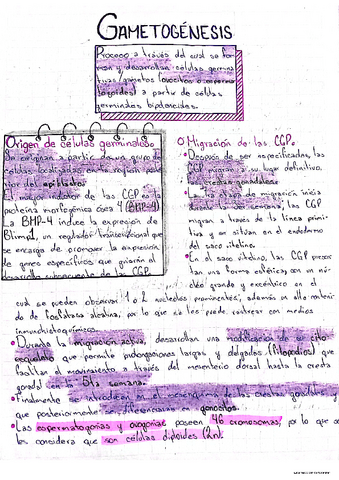 GAMETOGÉNESIS
Proceso a través del cual se for-
man y desarrollan células germina-
tivas/gametos (ovocitos o esperma-
tozoides) a partir de células
germinales bipotenciales.
Origen de células germinales
Se originan a partir de un grupo de
células localizadas en la región poste-
rior del epiblasto.
El mayor inductor de las CGP es la
proteína morfogénica ósea 4 (BHP-4)
La BHP-4 induce la expresión de
Blimp1, un regulador transcripcional que
se encarga de promover la expresión
de genes específicos que guiarán el
desarrollo subsecuente de las CGP.
Migración de las CGP.
Después de ser especificadas, las
CGP migran a su lugar definitivo,
las crestas gonadales.
La de migración inicia
semana, las CGP
migran a través de la línea primi-
tiva y se sitúan en el endodermo
del saco vitelino.
En el saco vitelino, las CGP presen-
tan una forma esférica, con un nú-
cleo grande y excéntrico en el
cual se pueden observar 1 o 2 nucléolos prominentes; además un alto conteni-
do de fosfatasa alcalina, por lo que se les puede rastrear con medios
inmunohistoquímicos.
Durante la migración activa, desarrollan una modificación de su cito-
esqueleto que permite prolongaciones largas y delgadas (filopodios) que
facilitan el movimiento a través del mesenterio dorsal hasta la cresta
gonadal en la 5ta semana.
Finalmente se introducen en el mesénquima de las crestas gonadales y
que posteriormente se diferencian en gonocitos.
Las espermatogonias y ovogonias poseen 46 cromosomas, por lo que se
les considera que son células diploides (2n).